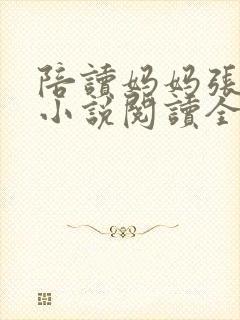 陪讀妈妈張
小說閱讀全